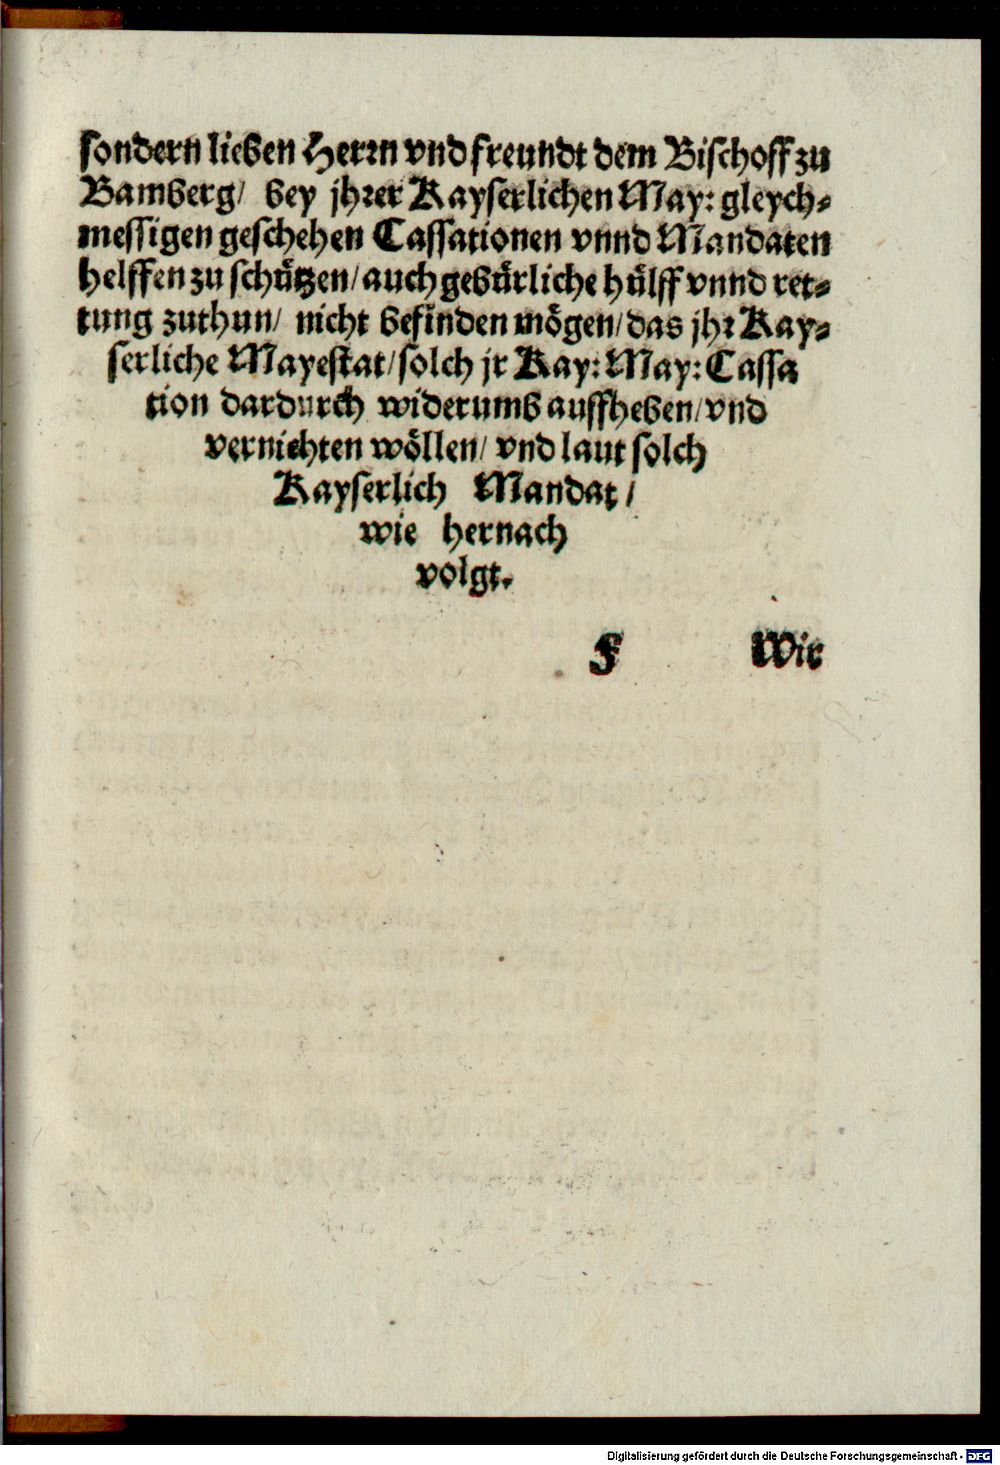 sondern lieben Herrn vnd freundt dem Bischoff zu
Bamberg/ bey jhrer Kayserlichen May: gleych-
messigen geschehen Cassationen vnnd Mandaten
helffen zu schützen/ auch gebürliche hülff vnnd ret-
tung zuthun/ nicht befinden mögen/ das jhr Kay-
serliche Mayestat/ solch jr Kay: May: Cassa
tion dardurch widerumb auffheben/ vnd
vernichten wöllen/ vnd laut solch
Kayserlich Mandat/
wie hernach
volgt.
F Wir
Digitalisierung gefördert durch die Deutsche Forschungsgemeinschaft - DFG